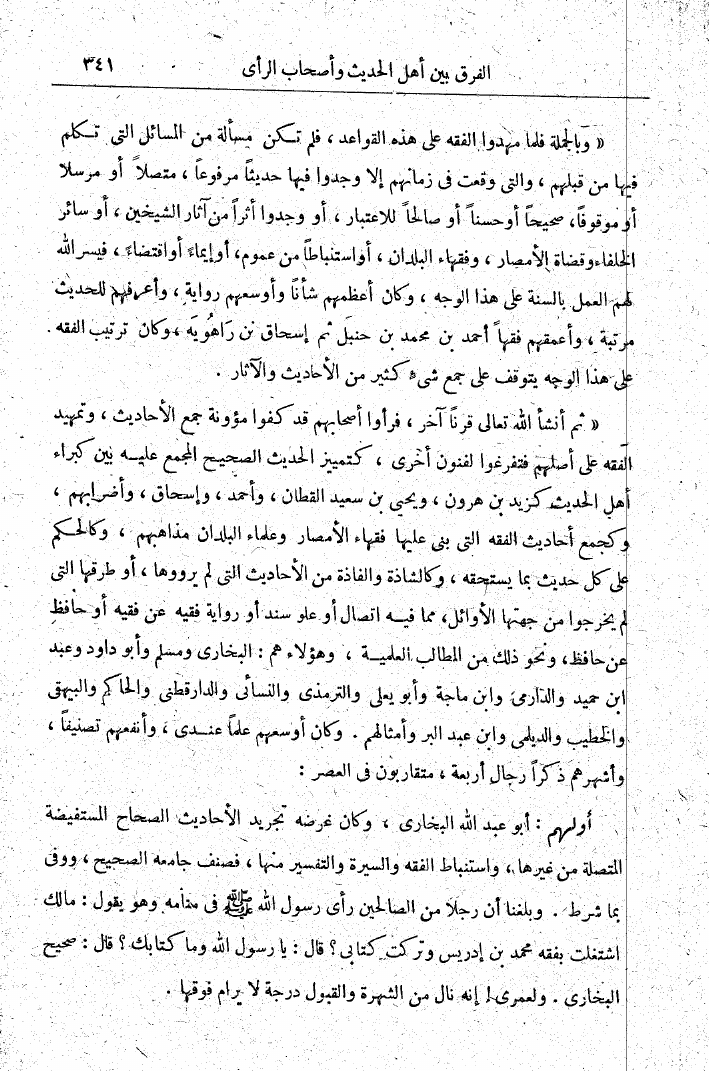 الفرق بين أهل الحديث وأصحاب الرأى ٣٤١
« وبالجملة فلما مهدوا الفقه على هذه القواعد ، فلم تكن مسألة من المسائل التى تكلم
فيها من قبلهم ، والتى وقعت فى زمانهم إلا وجدوا فيها حديثاً مرفوعاً ، متصلاً أو مرسلا
أو موقوفاً ، صحيحاً أو حسناً أو صالحاً للاعتبار ، أو وجدوا أثراً من آثار الشيخين ، أو سائر
الخلفاء وقضاة الأمصار ، وفقهاء البلدان ، أو استنباطاً من عموم، أو إيماءً أو اقتضاءً ، فيسر الله
لهم العمل بالسنة على هذا الوجه ، وكان أعظمهم شأناً وأوسعهم رواية ، وأعرفهم للحديث
مرتبة ، وأعمقهم فقهاً أحمد بن محمد بن حنبل ثم إسحاق بن راهُويَه ، وكان ترتيب الفقه
على هذا الوجه يتوقف على جمع شىء كثير من الأحاديث والآثار .
« ثم أنشأ الله تعالى قرناً آخر ، فرأوا أصحابهم قد كفوا مؤونة جمع الأحاديث ، وتمهيد
الفقه على أصلهم فتفرغوا لفنون أخرى ، كتمييز الحديث الصحيح المجمع عليه بين كبراء
أهل الحديث كزيد بن هرون ، ويحيى بن سعيد القطان ، وأحمد ، وإسحاق ، وأضرابهم ،
وكجمع أحاديث الفقه التى بنى عليها فقهاء الأمصار وعلماء البلدان مذاهبهم ، وكالحكم
على كل حديث بما يستحقه ، وكالشاذة والفاذة من الأحاديث التى لم يرووها ، أو طرقها التى
لم يخرجوا من جهتها الأوائل، مما فيه اتصال أو علو سند أو رواية فقيه عن فقيه أو حافظ
عن حافظ، ونحو ذلك من المطالب العلمية ، وهؤلاء هم : البخارى ومسلم وأبو داود وعبد
ابن حميد والدارمى وابن ماجة وأبو يعلى والترمذى والنسائى والدارقطنى والحاكم والبيهقى
والخطيب والديلمى وابن عبد البر وأمثالهم . وكان أوسعهم علماً عندى ، وأنفعهم تصنيفاً ،
وأشهرهم ذكراً رجال أربعة ، متقاربون فى العصر :
أولهم : أبو عبد الله البخارى ، وكان غرضه تجريد الأحاديث الصحاح المستفيضة
المتصلة من غيرها ، واستنباط الفقه والسيرة والتفسير منها ، فصنف جامعه الصحيح ، ووفى
بما شرط . وبلغنا أن رجلا من الصالحين رأى رسول الله ﷺ فى منامه وهو يقول : مالك
اشتغلت بفقه محمد بن إدريس وتركت كتابى ؟ قال : يا رسول الله وما كتابك ؟ قال : صحيح
البخارى . ولعمرى إنه نال من الشهرة والقبول درجة لا يرام فوقها .